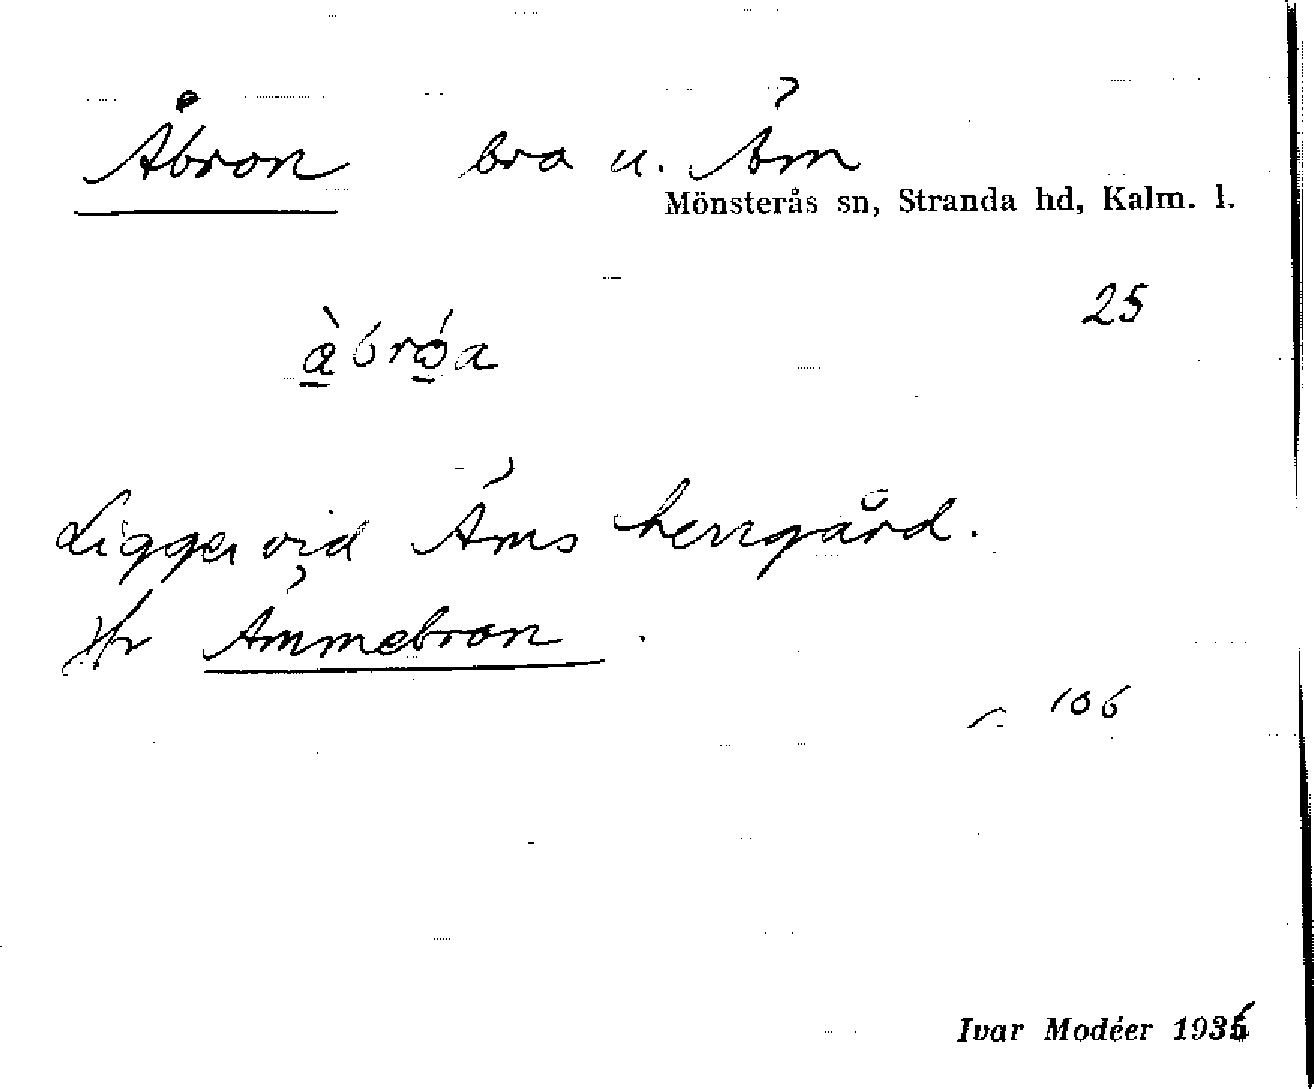 Åbron bro u. Åm
Mönsterås sn, Stranda hd, Kalm. l.
25
Ligger vid Åms herrgård.
Hr Åmmebron.
106
Ivar Modéer 1936